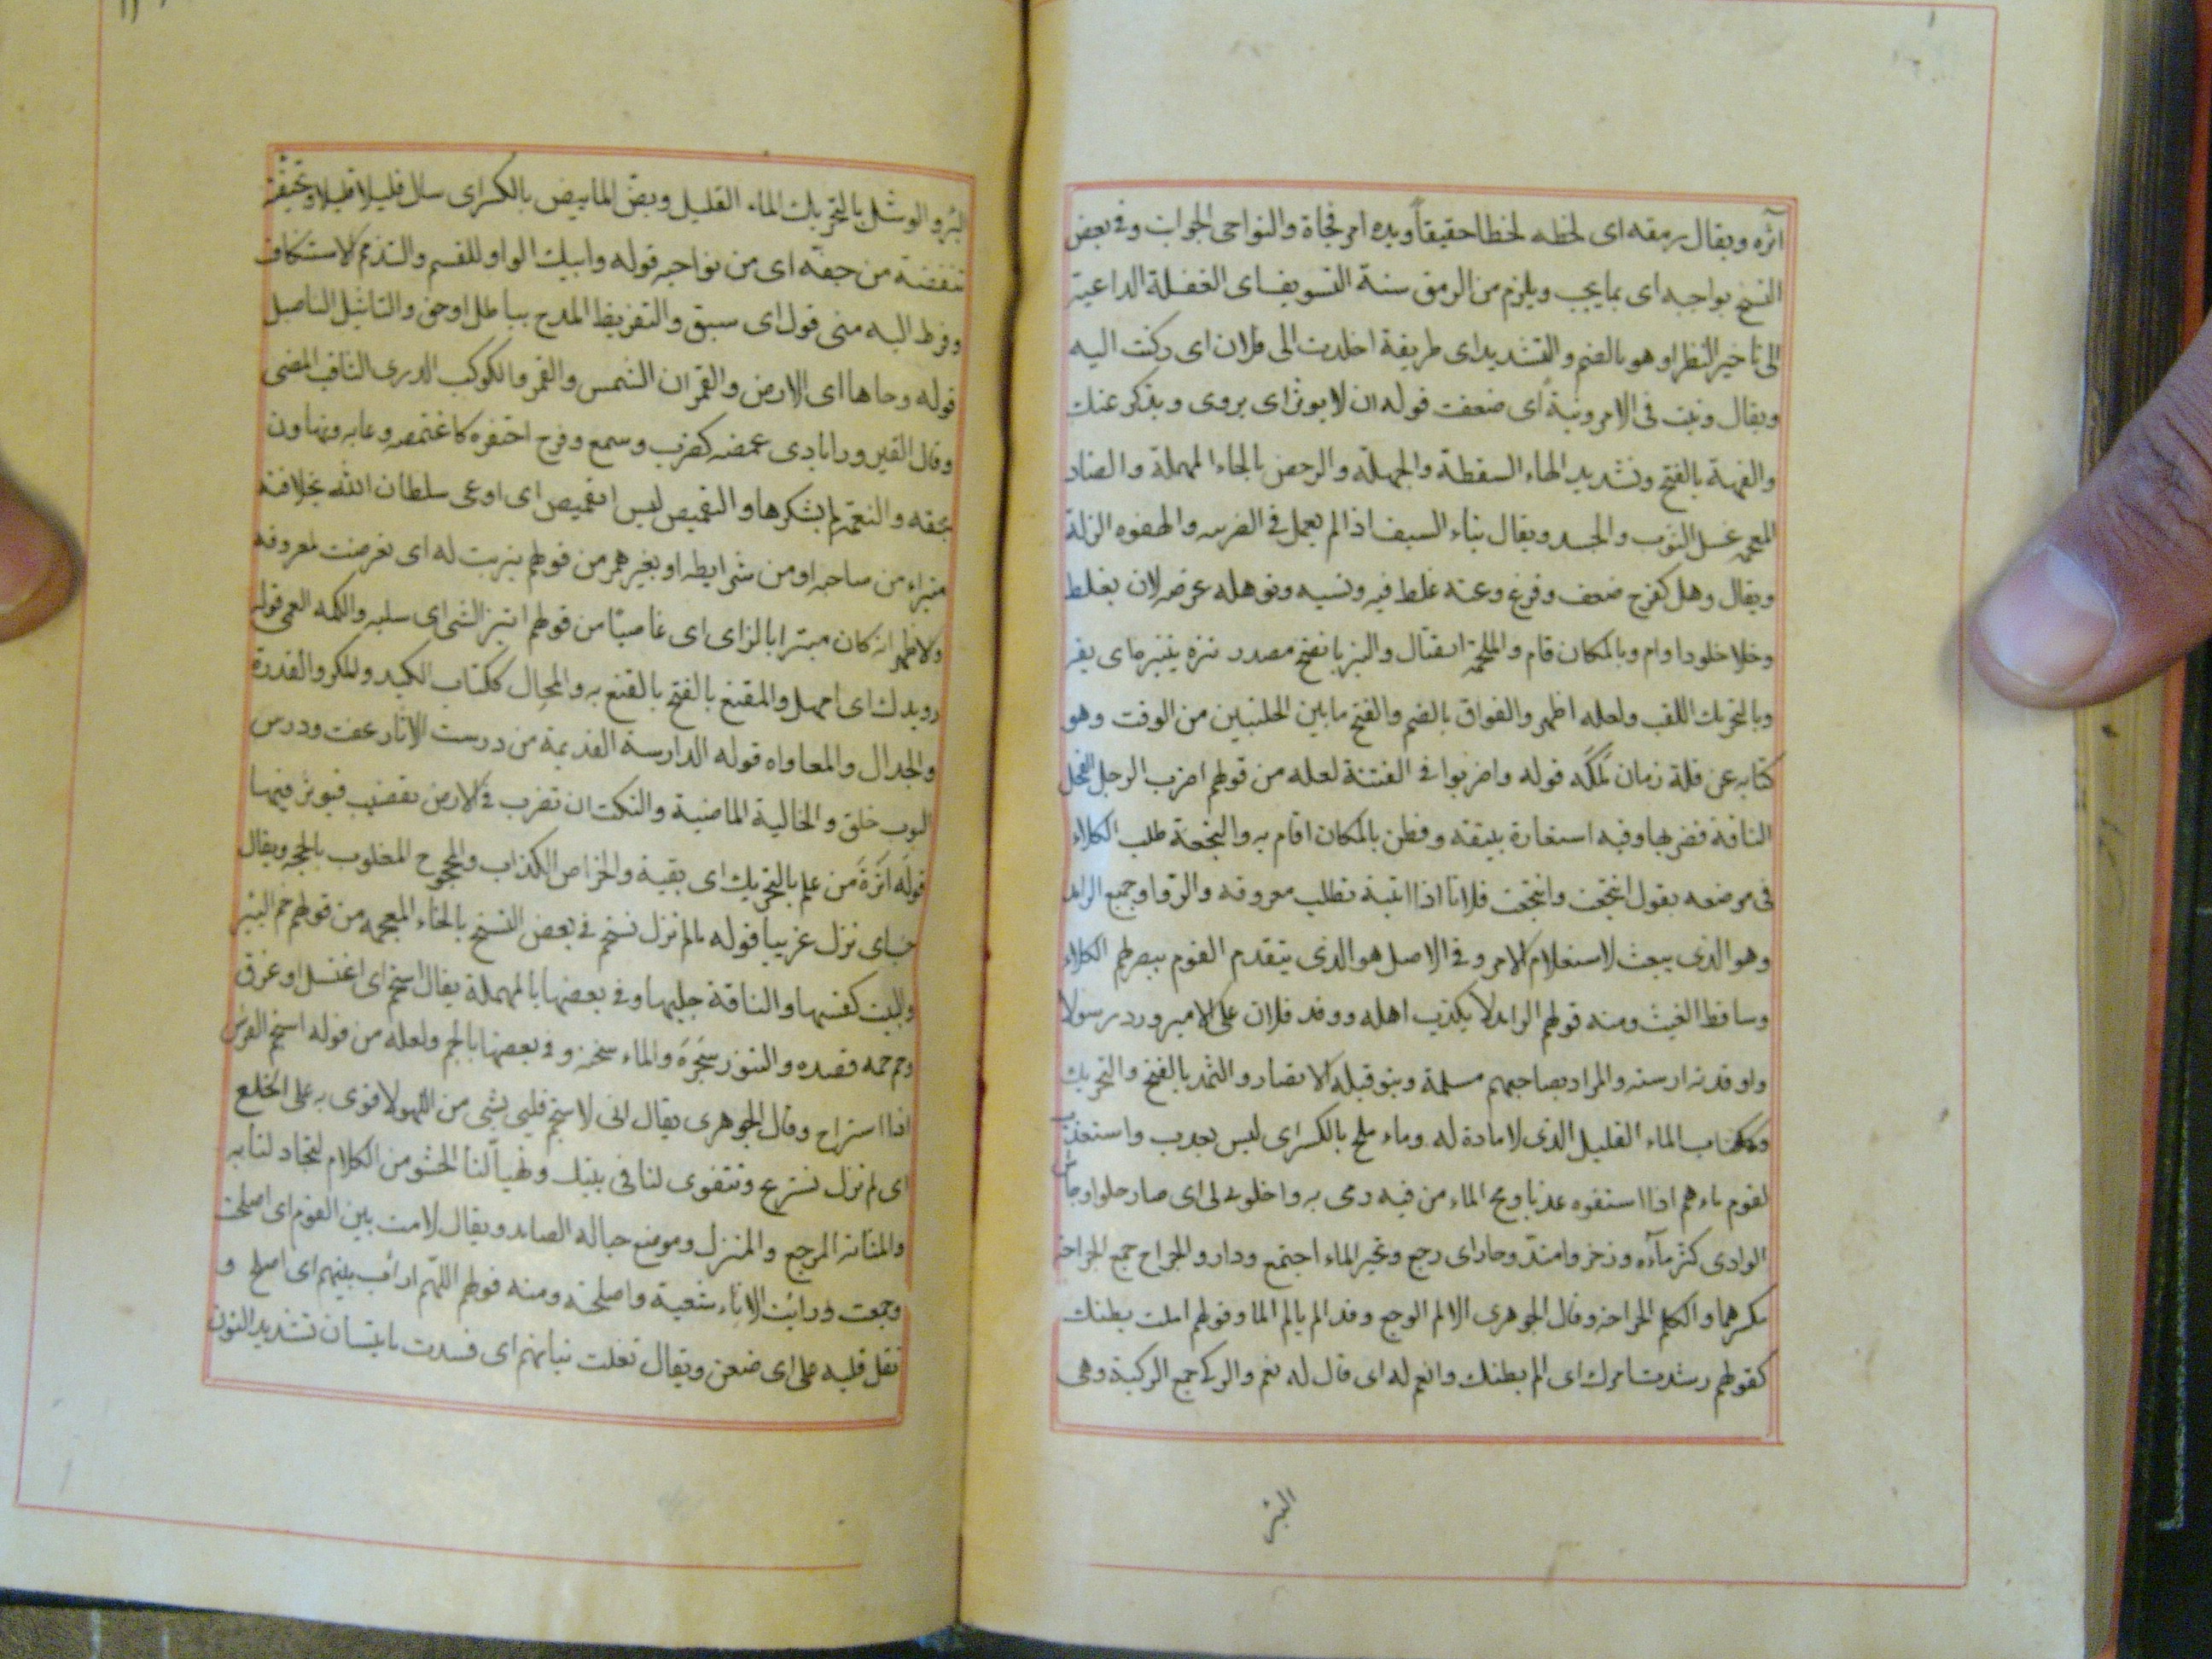 آثره ويقال رمقه اى لحظه لحظا حقيقاً وبده امر فجاة والنواحى الجواب وفى بعض
النسخ بواجبه اى بما يجب ويلزم من الرمق سنة التسويف اى الغفلة الداعية
الى تأخير النظر او هو بالضم والتشديد اى طريقة اخلدت الى فلان اى ركنت اليه
ويقال ونيت فى الامر ونية اى ضعفت قوله ان لا يوثر اى يروى ويذكر عنك
والفهة بالفتح وتشديد الهاء السقطة والجهلة والرحض بالحاء المهملة والضاد
المعجمة غسل الثوب والجسد ويقال نباء السيف اذا لم يعمل فى الضريبه والهفوه الزلة
ويقال وهل كفرح ضعف وفزع وعنه غلط فيه ونسيه وتوهله عرضه لان يغلط
وخلا خلودا وام وبالمكان قام والملحمة القتال والنبز بالفتح مصدر نبزه ينبزه اى
وبالتحريك اللقب ولعله اظهر والفواق بالضم والفتح ما بين الحلبتين من الوقت وهو
كتابه عن قلة زمان تملكه قوله واضربوا فى الفتنة لعله من قولهم اضرب الرجل الفحل
الناقة فضربها وفيه استعارة وقطن بالمكان اقام به والنجعة طلب الكلاء
فى موضعه يقول انتجعت وانتجعت فلانا اذا اتيته تطلب معروفه والرواد جمع الرائد
وهو الذى يبعث لاستعلام الامر وفى الاصل هو الذى يتقدم القوم يبصر لهم الكلاء
وساقط الغيث ومنه قولهم الرائد لا يكذب اهله ووفد فلان على الامير ورد رسولا
واوفدته ارسلته والمراد بصاحبهم مسلمة وبنو قيله الانصار والثمد بالفتح والتحريك
وككتاب الماء القليل الذى لا مادة له وماء ملح بالكسر اى ليس بعذب واستعذب
لقوم ماءهم اذا استقوه عذبا ومج الماء من فيه رمى به واحلولى لى اى صار حلوا وجاش
الوادى كثر مآءه وزخر وامتد وحار اى رجع وتحير الماء اجتمع ودار والجراح جمع الجراحة
بكسرهما والكلم الجراحة وقال الجوهرى الالم الوجع وقد الم يالم الما وقولهم المت بطنك
كقولهم رشدت امرك اى الم بطنك وانعم له اى قال له نعم والركى جمع الركية وهى
البئر
البئر والوشل بالتحريك الماء القليل وبض الما يبض بالكسر اى سال قليلا قليلا
من حففه اى من نواحيه قوله وابيك الواو للقسم والتذمم الاستنكاف
وفرط اليه منى قول اى سبق والتقريظ المدح بباطل او حق والتاثيل التاصيل
قوله وحاها اى الارض والقمران الشمس والقمر والكوكب الدرى الثاقب المضى
وقال الفيروزابادى غمضه كضرب وسمع وفرح احتقره كاغتمصه وعابه وتهاون
بحقه والنعمة لم يشكرها والتقميص لبس القميص اى ادعى سلطان الله بخلافته
متبراء من صاحبه او من شرايطه او بغير همز من قولهم تبريت له اى تعرضت لمعروفه
ولاظهر انه كان مبتزا بالزاى اى غاصبًا من قولهم ابتز الشى اى سلبه والكمه العمى قوله
رويدك اى امهل والمقنع بالفتح بالقنع به والمحال ككتاب الكيد والمكر والقدرة
والجدال والمعاداه قوله الدارسة القديمة من درست الاثار عفت ودرس
الثوب خلق والخالية الماضية والنكت ان تضرب فى الارض بقضيب فيوثر فيها
قوله اثَرَةَ من علم بالتحريك اى بقية والخراص الكذاب والمحجوج المغلوب بالحجه ويقال
اى نزل غريبا قوله ما لم نزل نسخم فى بعض النسخ بالخاء المعجمه من قولهم خم البئر
والبيت كنسها والناقة حلبها وفى بعضها بالمهملة يقال استحم اى اغتسل او عرق
وحم حمه قصده والتنور سجَرَهَ والماء سخنه وفى بعضها بالجيم ولعله من قوله استجم الفرس
اذا استراح وقال الجوهرى يقال انى لاستجم قلبى بشى من اللهو لاقوى به على الخلع
اى لم نزل نستريح ونتقوى لنا فى بيتك وتهيأ لنا الحشو من الكلام لتجاد لنا به
والمثابة المرجع والمنزل وموضع حباله الصايد ويقال لامت بين القوم اى اصلحت
وجمعت ورابت الاناء شعبته واصلحته ومنه قولهم اللهم ارأب بينهم اى اصلح و
نغل قلبه على اى ضغن ويقال نغلت نياتهم اى فسدت تشديد النون